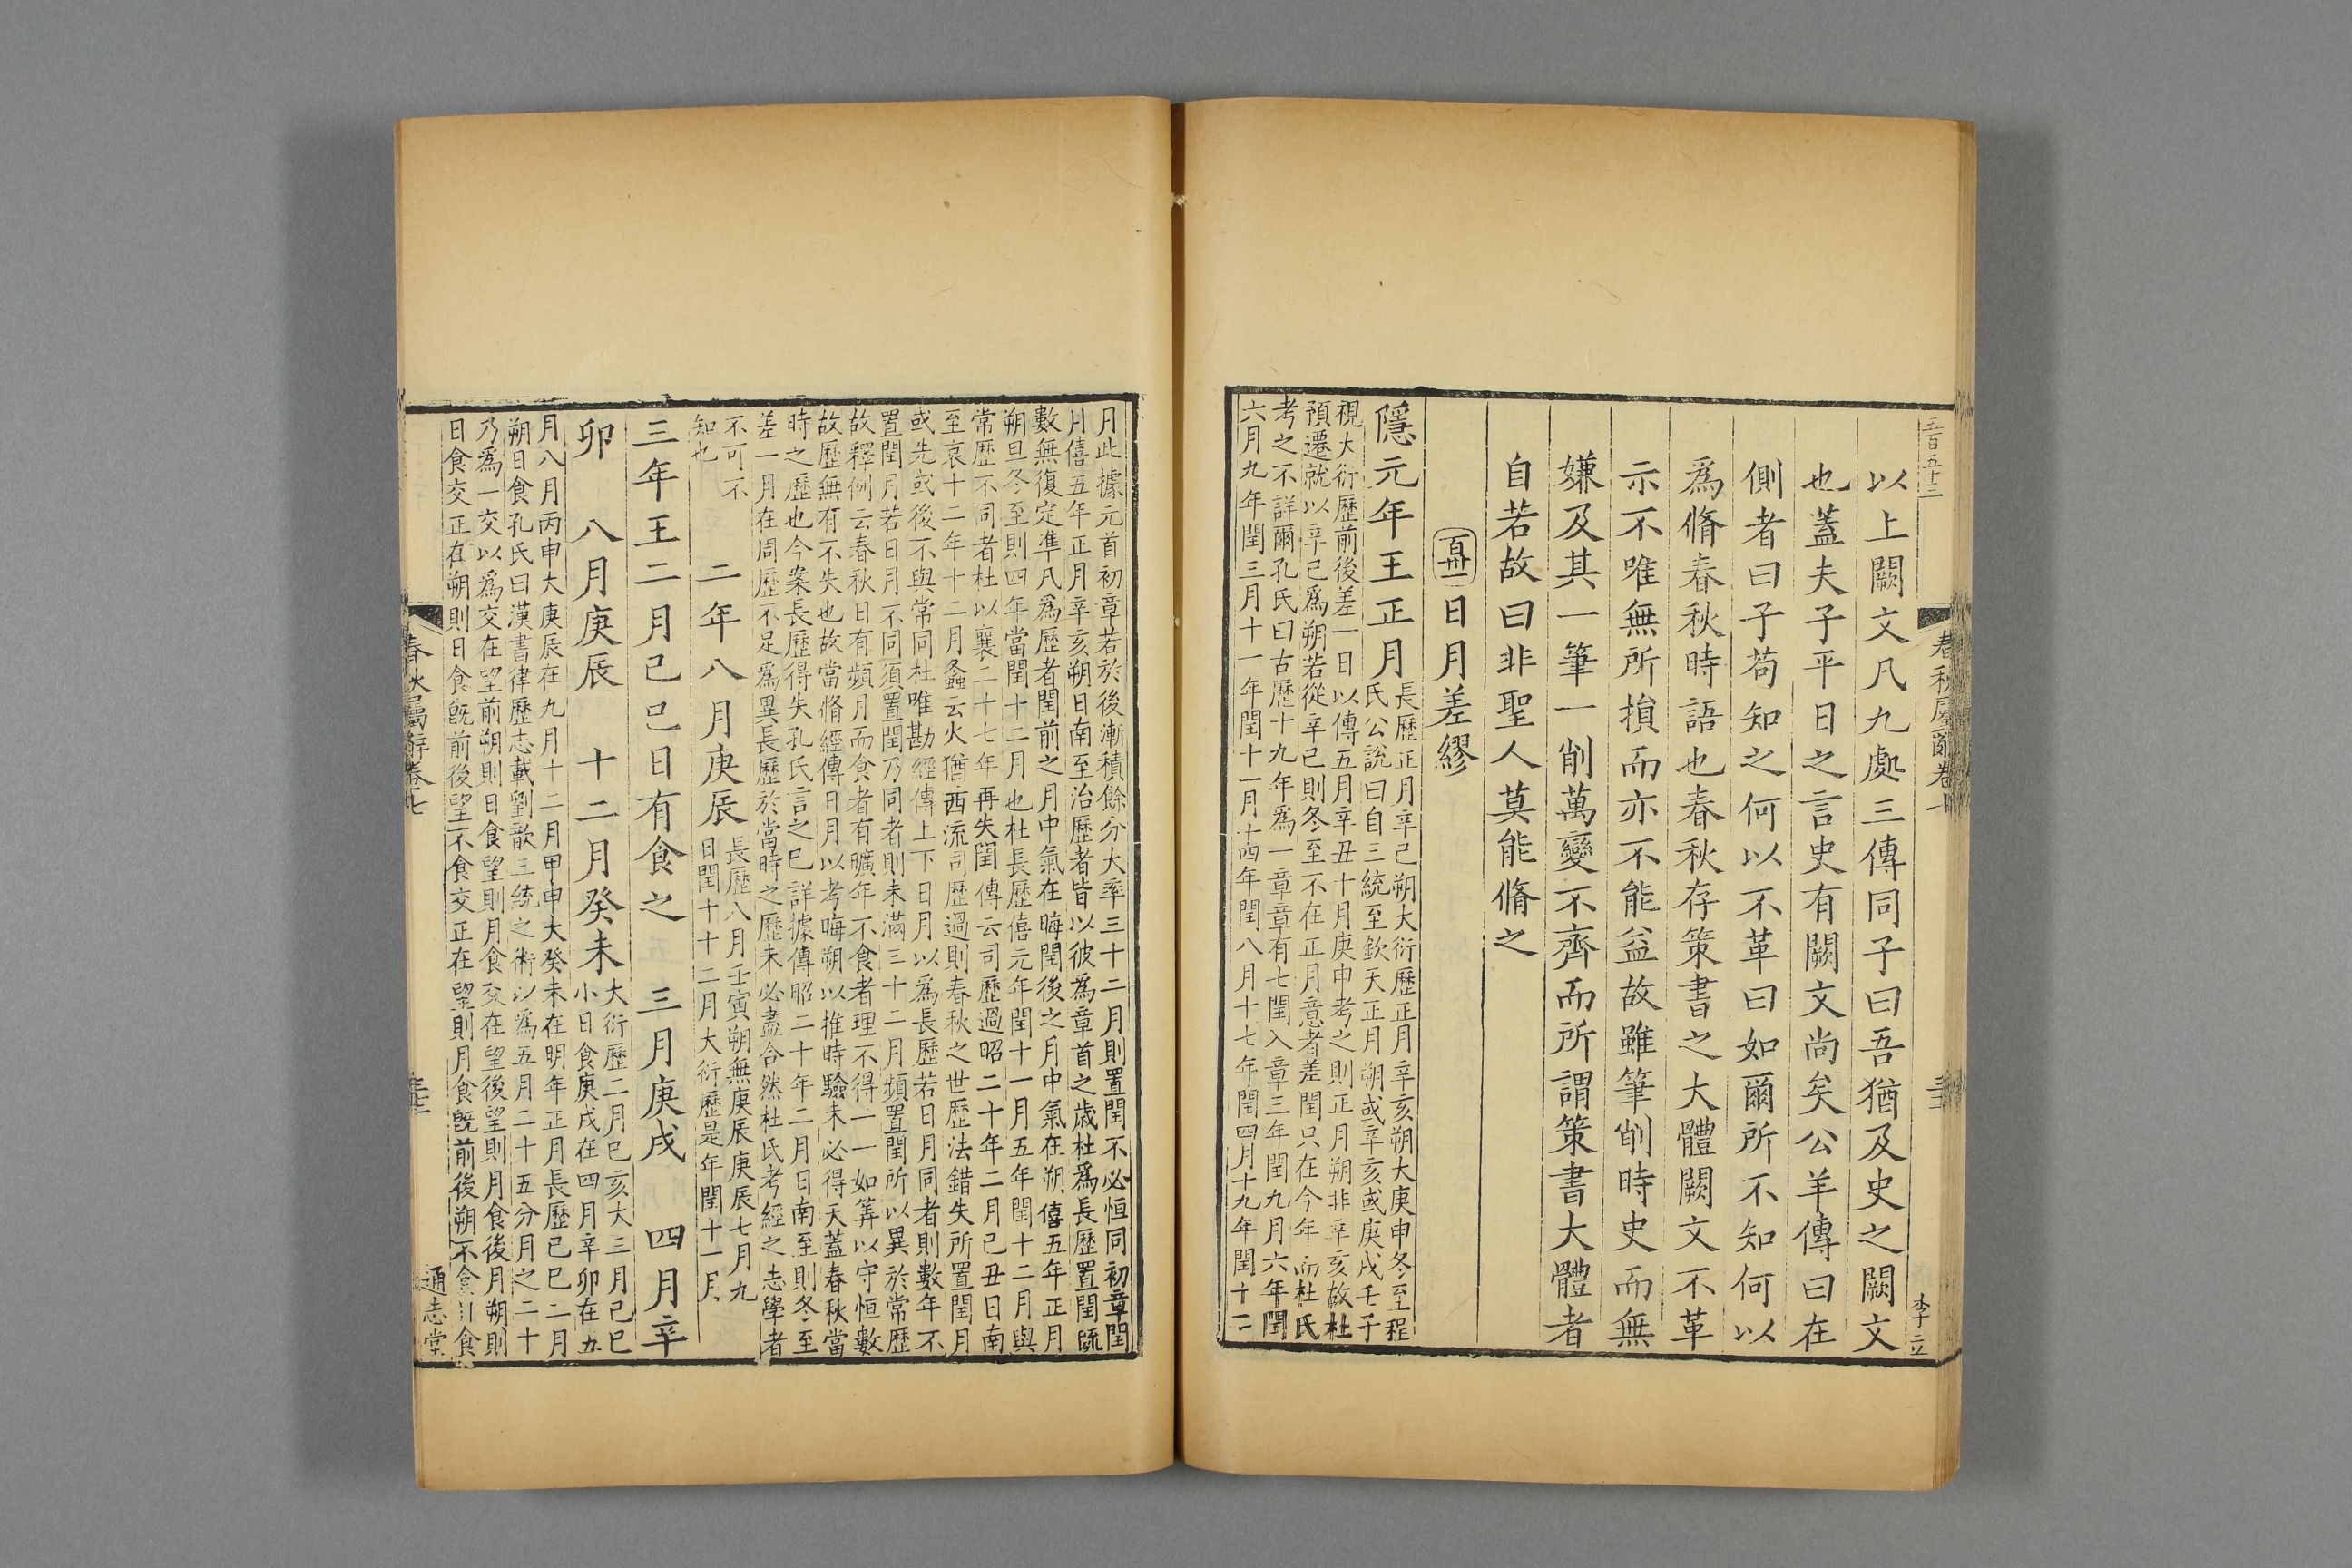 五百五十三
春秋屬辭卷十
李立
以上闕文凡九處三傳同子曰吾猶及史之闕文
也蓋夫子平日之言史有闕文尚矣公羊傳曰在
側者曰子苟知之何以不革曰如爾所不知何以
爲脩春秋時語也春秋存策書之大體闕文不革
示不唯無所損而亦不能益故雖筆削時史而無
嫌及其一筆一削萬變不齊而所謂策書大體者
自若故曰非聖人莫能脩之
日月差繆
隱元年王正月
長歷正月辛巳朔大衍歷正月辛亥朔大庚申冬至程
氏公說曰自三統至欽天正月朔或辛亥或庚戌壬子
視大衍歷前後差一日以傳五月辛丑十月庚申考之則正月朔非辛亥故杜
預遷就以辛巳爲朔若從辛巳則冬至不在正月意者差閏只在今年而杜氏
考之不詳爾孔氏曰古歷十九年爲一章章有七閏入章三年閏九月六年閏
六月九年閏三月十一年閏十一月十四年閏八月十七年閏四月十九年閏十二
月此據元首初章若於後漸積餘分大率三十二月則置閏不必恒同初章閏
月僖五年正月辛亥朔日南至治歷者皆以彼爲章首之歲杜爲長歷置閏疏
數無復定準凡爲歷者閏前之月中氣在晦閏後之月中氣在朔僖五年正月
朔旦冬至則四年當閏十二月也杜長歷僖元年閏十一月五年閏十二月與
常歷不同者杜以襄二十七年再失閏傳云司歷過昭二十年二月己丑日南
至哀十二年十二月螽云火猶西流司歷過則春秋之世歷法錯失所置閏月
或先或後不與常同杜唯勘經傳上下日月以爲長歷若日月同者則數年不
置閏月若日月不同須置閏乃同者則未滿三十二月頻置閏所以異於常歷
故釋例云春秋日有頻月而食者有曠年不食者理不得一一如筭以守恒數
故歷無有不失也故當脩經傳日月以考晦朔以推時驗未必得天蓋春秋當
時之歷也今案長歷得失孔氏言之已詳據傳昭二十年二月日南至則冬至
差一月在周歷不足爲異長歷於當時之歷未必盡合然杜氏考經之志學者
不可不
知也
二年八月庚辰
長歷八月壬寅朔無庚辰庚辰七月九
日閏十十二月大衍歷是年閏十一月
三年王二月己巳日有食之　三月庚戌　四月辛
卯　八月庚辰　十二月癸未
大衍歷二月己亥大三月己巳
小日食庚戌在四月辛卯在五
月八月丙申大庚辰在九月十二月甲申大癸未在明年正月長歷己巳二月
朔日食孔氏曰漢書律歷志載劉歆三統之術以爲五月二十五分月之二十
乃爲一交以爲交在望前朔則日食望則月食交在望後望則月食後月朔則
日食交正在朔則日食既前後望不食交正在望則月食既前後朔不食日食
通志堂